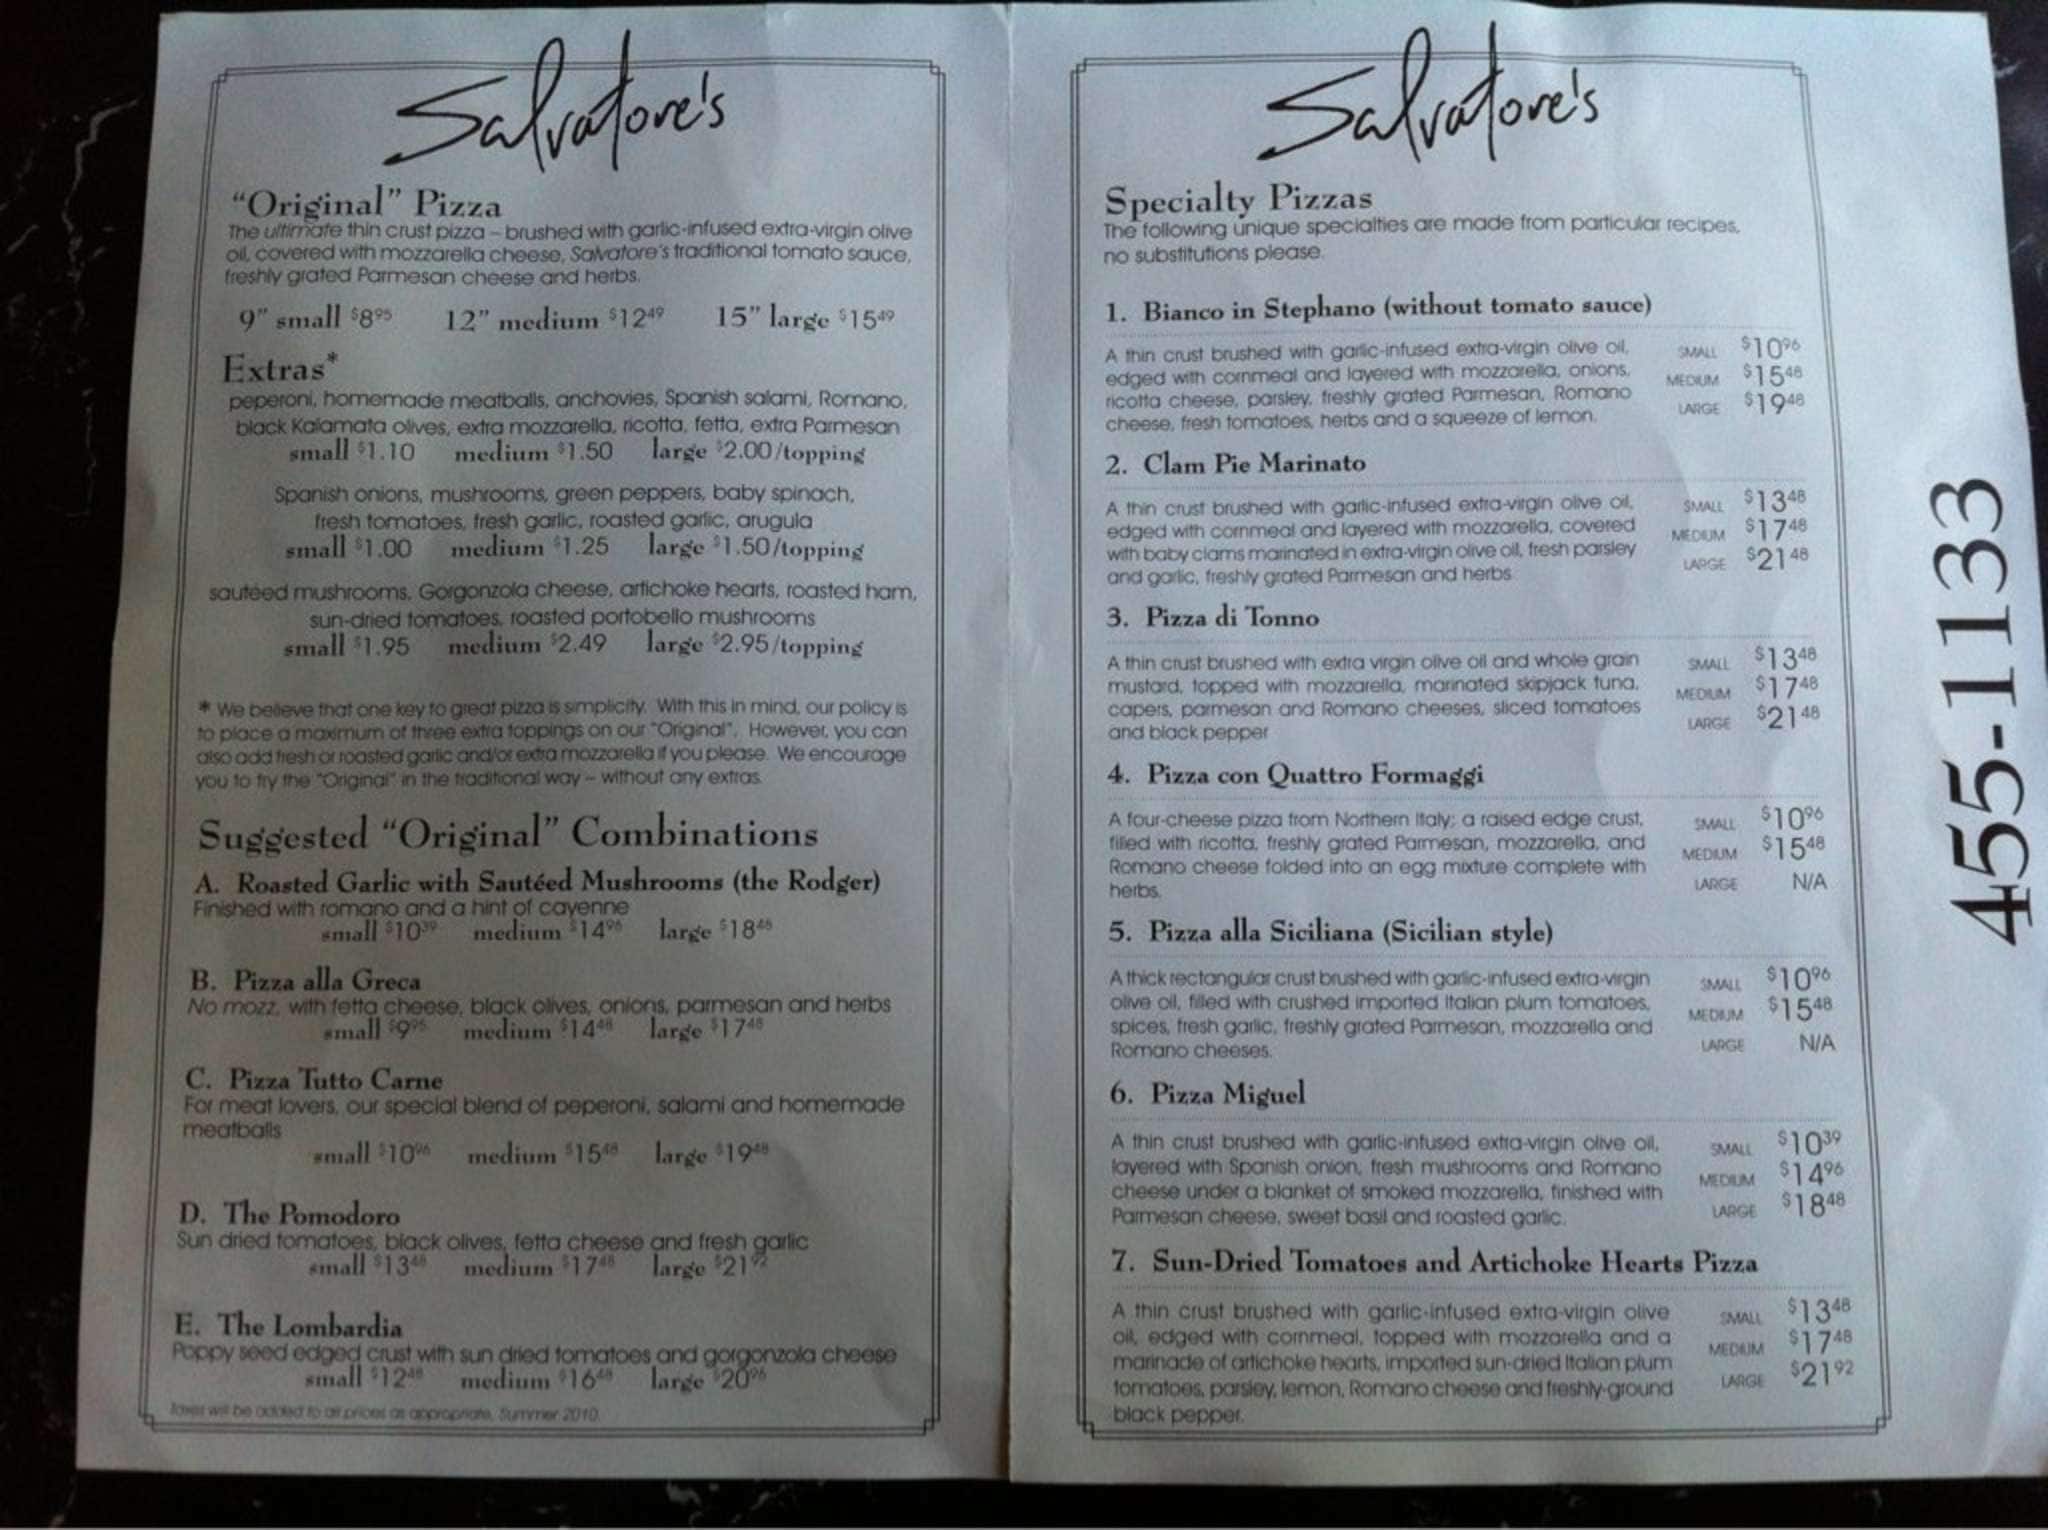 Salvatore's
“Original” Pizza
The ultimate thin crust pizza – brushed with garlic-infused extra-virgin olive
oil, covered with mozzarella cheese, Salvatore's traditional tomato sauce,
freshly grated Parmesan cheese and herbs.
9” small $8.95 12” medium $12.49 15” large $15.49
Extras*
peperoni, homemade meatballs, anchovies, Spanish salami, Romano,
black Kalamata olives, extra mozzarella, ricotta, fetta, extra Parmesan
small $1.10 medium $1.50 large $2.00/topping
Spanish onions, mushrooms, green peppers, baby spinach,
fresh tomatoes, fresh garlic, roasted garlic, arugula
small $1.00 medium $1.25 large $1.50/topping
sautéed mushrooms, Gorgonzola cheese, artichoke hearts, roasted ham,
sun-dried tomatoes, roasted portobello mushrooms
small $1.95 medium $2.49 large $2.95/topping
* We believe that one key to great pizza is simplicity. With this in mind, our policy is
to place a maximum of three extra toppings on our "Original". However, you can
also add fresh or roasted garlic and/or extra mozzarella if you please. We encourage
you to try the "Original" in the traditional way – without any extras.
Suggested “Original” Combinations
A. Roasted Garlic with Sautéed Mushrooms (the Rodger)
Finished with romano and a hint of cayenne
small $10.39 medium $14.96 large $18.48
B. Pizza alla Greca
No mozz, with fetta cheese, black olives, onions, parmesan and herbs
small $9.95 medium $14.48 large $17.48
C. Pizza Tutto Carne
For meat lovers, our special blend of peperoni, salami and homemade
meatballs
small $10.96 medium $15.48 large $19.48
D. The Pomodoro
Sun dried tomatoes, black olives, fetta cheese and fresh garlic
small $13.48 medium $17.48 large $21.92
E. The Lombardia
Poppy seed edged crust with sun dried tomatoes and gorgonzola cheese
small $12.48 medium $16.48 large $20.96
Taxes will be added to all prices as appropriate. Summer 2010
Salvatore's
Specialty Pizzas
The following unique specialties are made from particular recipes,
no substitutions please.
1. Bianco in Stephano (without tomato sauce)
A thin crust brushed with garlic-infused extra-virgin olive oil, SMALL $10.96
edged with cornmeal and layered with mozzarella, onions, MEDIUM $15.48
ricotta cheese, parsley, freshly grated Parmesan, Romano LARGE $19.48
cheese, fresh tomatoes, herbs and a squeeze of lemon.
2. Clam Pie Marinato
A thin crust brushed with garlic-infused extra-virgin olive oil, SMALL $13.48
edged with cornmeal and layered with mozzarella, covered MEDIUM $17.48
with baby clams marinated in extra-virgin olive oil, fresh parsley LARGE $21.48
and garlic, freshly grated Parmesan and herbs
3. Pizza di Tonno
A thin crust brushed with extra virgin olive oil and whole grain SMALL $13.48
mustard, topped with mozzarella, marinated skipjack tuna, MEDIUM $17.48
capers, parmesan and Romano cheeses, sliced tomatoes LARGE $21.48
and black pepper
4. Pizza con Quattro Formaggi
A four-cheese pizza from Northern Italy; a raised edge crust, SMALL $10.96
filled with ricotta, freshly grated Parmesan, mozzarella, and MEDIUM $15.48
Romano cheese folded into an egg mixture complete with LARGE N/A
herbs.
5. Pizza alla Siciliana (Sicilian style)
A thick rectangular crust brushed with garlic-infused extra-virgin SMALL $10.96
olive oil, filled with crushed imported Italian plum tomatoes, MEDIUM $15.48
spices, fresh garlic, freshly grated Parmesan, mozzarella and LARGE N/A
Romano cheeses.
6. Pizza Miguel
A thin crust brushed with garlic-infused extra-virgin olive oil, SMALL $10.39
layered with Spanish onion, fresh mushrooms and Romano MEDIUM $14.96
cheese under a blanket of smoked mozzarella, finished with LARGE $18.48
Parmesan cheese, sweet basil and roasted garlic.
7. Sun-Dried Tomatoes and Artichoke Hearts Pizza
A thin crust brushed with garlic-infused extra-virgin olive SMALL $13.48
oil, edged with cornmeal, topped with mozzarella and a MEDIUM $17.48
marinade of artichoke hearts, imported sun-dried Italian plum LARGE $21.92
tomatoes, parsley, lemon, Romano cheese and freshly-ground
black pepper.
455-1133